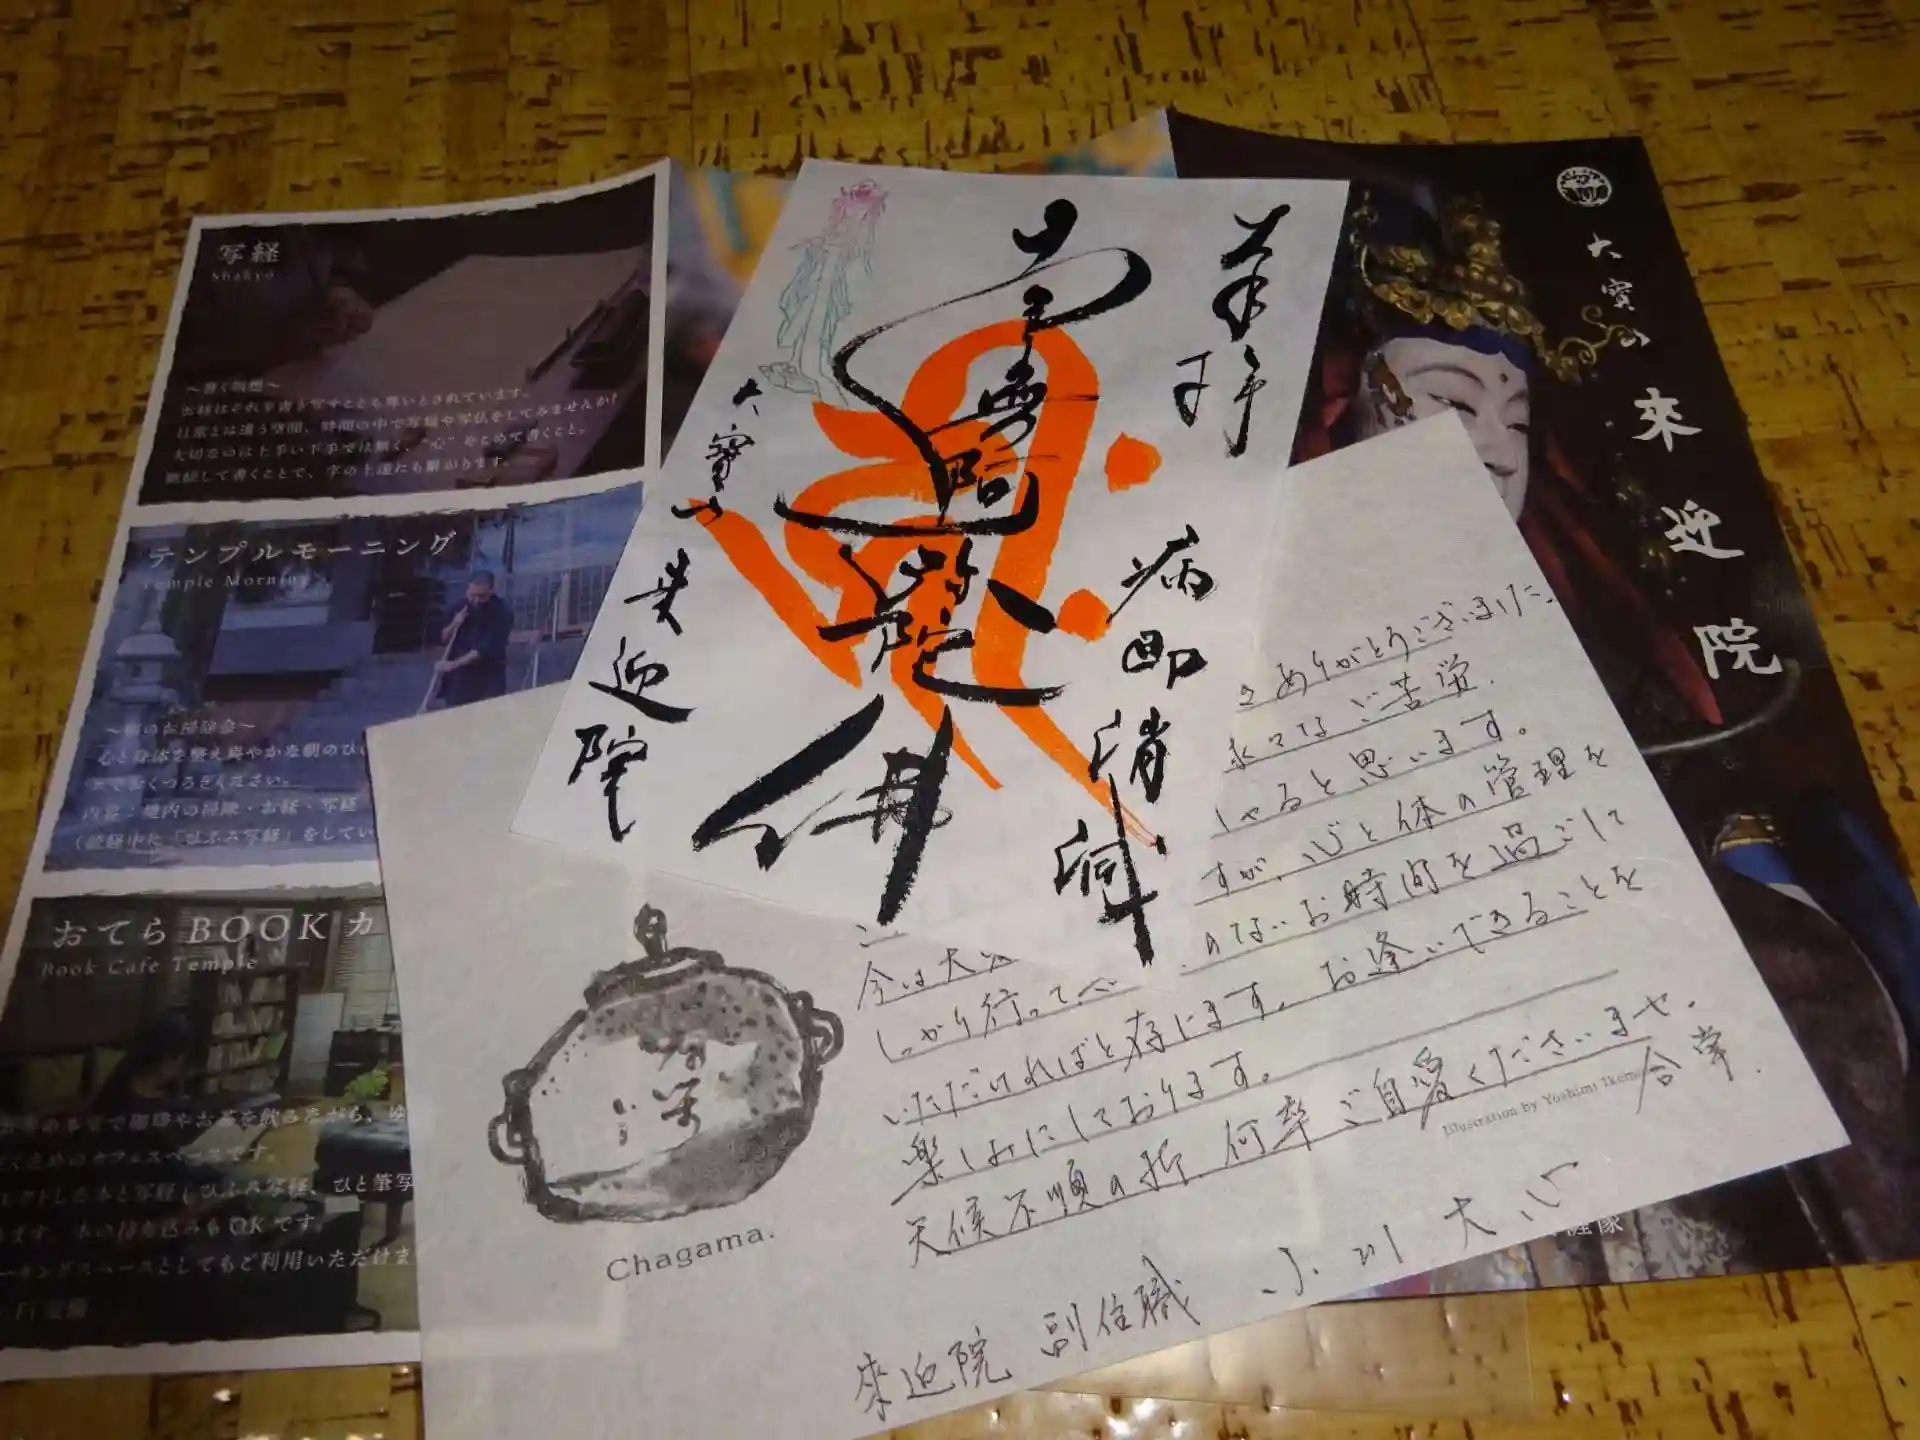 写経
Shakyo
～書く瞑想～
お経はそれを書き写すことも尊いとされています。
日常とは違う空間、時間の中で写経や写仏をしてみませんか?
大切なのは上手い下手では無く、“心”をこめて書くこと。
継続して書くことで、字の上達にも繋がります。
テンプルモーニング
Temple Morning
～朝のお掃除会～
心と身体を整え爽やかな朝のひ
でおくつろぎください。
内容：境内の掃除・お経・写経
(読経中に「ひふみ写経」をしてい
おてらBOOKカ
Book Cafe Temple
で珈琲やお茶を飲みながら、ゆ
カフェスペースです。
クトした本と写経(ひふみ写経、ひと筆写
ます。本の持ち込みもOKです。
ーキングスペースとしてもご利用いただけま
奉拝
病即消滅
南無阿弥陀佛
大寶山
来迎院
大寶山
來迎院
ありがとうございました。
々なご苦労
しゃると思います。
今は大
すが、心と体の管理を
しっかり行って
のないお時間を過ごして
いただければと存じます。お逢いできることを
楽しみにしております。
天候不順の折、何卒ご自愛くださいませ。
合掌
Illustration by Yoshimi Ikemo
來迎院 副住職 小川大心
Chagama.